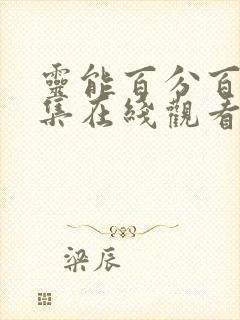 靈能百分百
集在綫觀看
梁辰